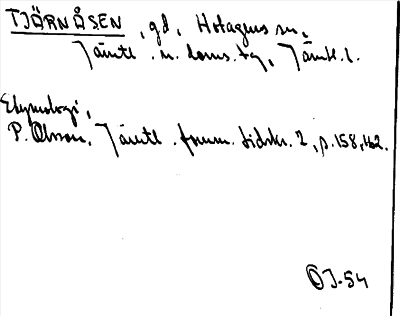 TJÄRNÅSEN, gd, Hotagens sn,
Jämtl. n. doms.tg, Jämtl. l.
Etymologi,
P. Olsson, Jämtl. fornm. tidskr. 2, p. 158, 162.
ÖJ-54